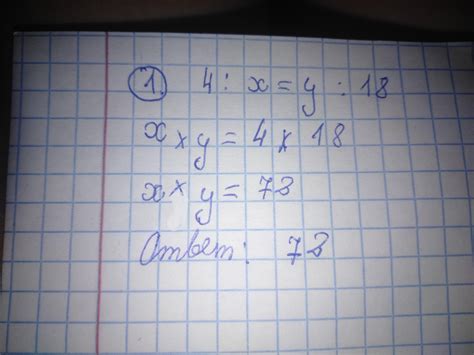 1. 4 : x = y : 18
x × y = 4 × 18
x × y = 72
Ответ: 72